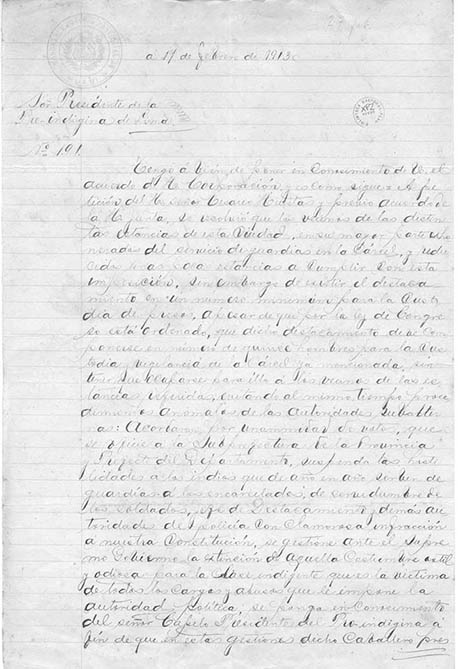 27 feb.
a 17 de febrero de 1913.
Sor. Presidente de la
Pro-indigina de Lima
Nº 191.
Tengo á bien de poner en conocimiento de U. el
acuerdo d' la Corporación, y es como sigue: A pe
tición del Señor y previo acuerdo de
la H. Junta, se resolvió que los vecinos de las distin
tas estancias de esta Ciudad, en su mayor parte
nerados del servicio de guardias en la Cárcel, y redu
cidas unas pocas estancias á cumplir con esta
imposición, sin embargo de existir el destaca
mento en un número minimum para la custo
dia de presos, apesar de que por la ley de Congre
so está ordenado, que dicho destacamento debe com
ponerse en número de quince hombres para la cus
todia y vigilancia de la Cárcel ya mencionada, sin
tener que ocuparse para ello á los vecinos de las es
tancias referidas, evitando al mismo tiempo proce
dimientos anómalos de las autoridades subalter
nas: Acordaron, por unanimidad de votos, que
se oficie a la Subprefectura de la Provincia
y Prefect. del Departamento, suspenda las hosti
lidades á los indios que de año en año sirven de
guardias á los encarcelados, de servidumbre de
los soldados, Jefe de Destacamento y demás au
toridades de policía con clamorosa infracción
a nuestra Constitución, se gestione ante el Supre
mo Gobierno la extinción de aquella costumbre
y odiosa para la clase indigente que es la víctima
de todos los cargos y abusos que le impone la
autoridad política, se ponga en conocimiento
del señor Capelo Presidente del Pro-indigina á
fin de que en estas gestiones dicho Caballero pres